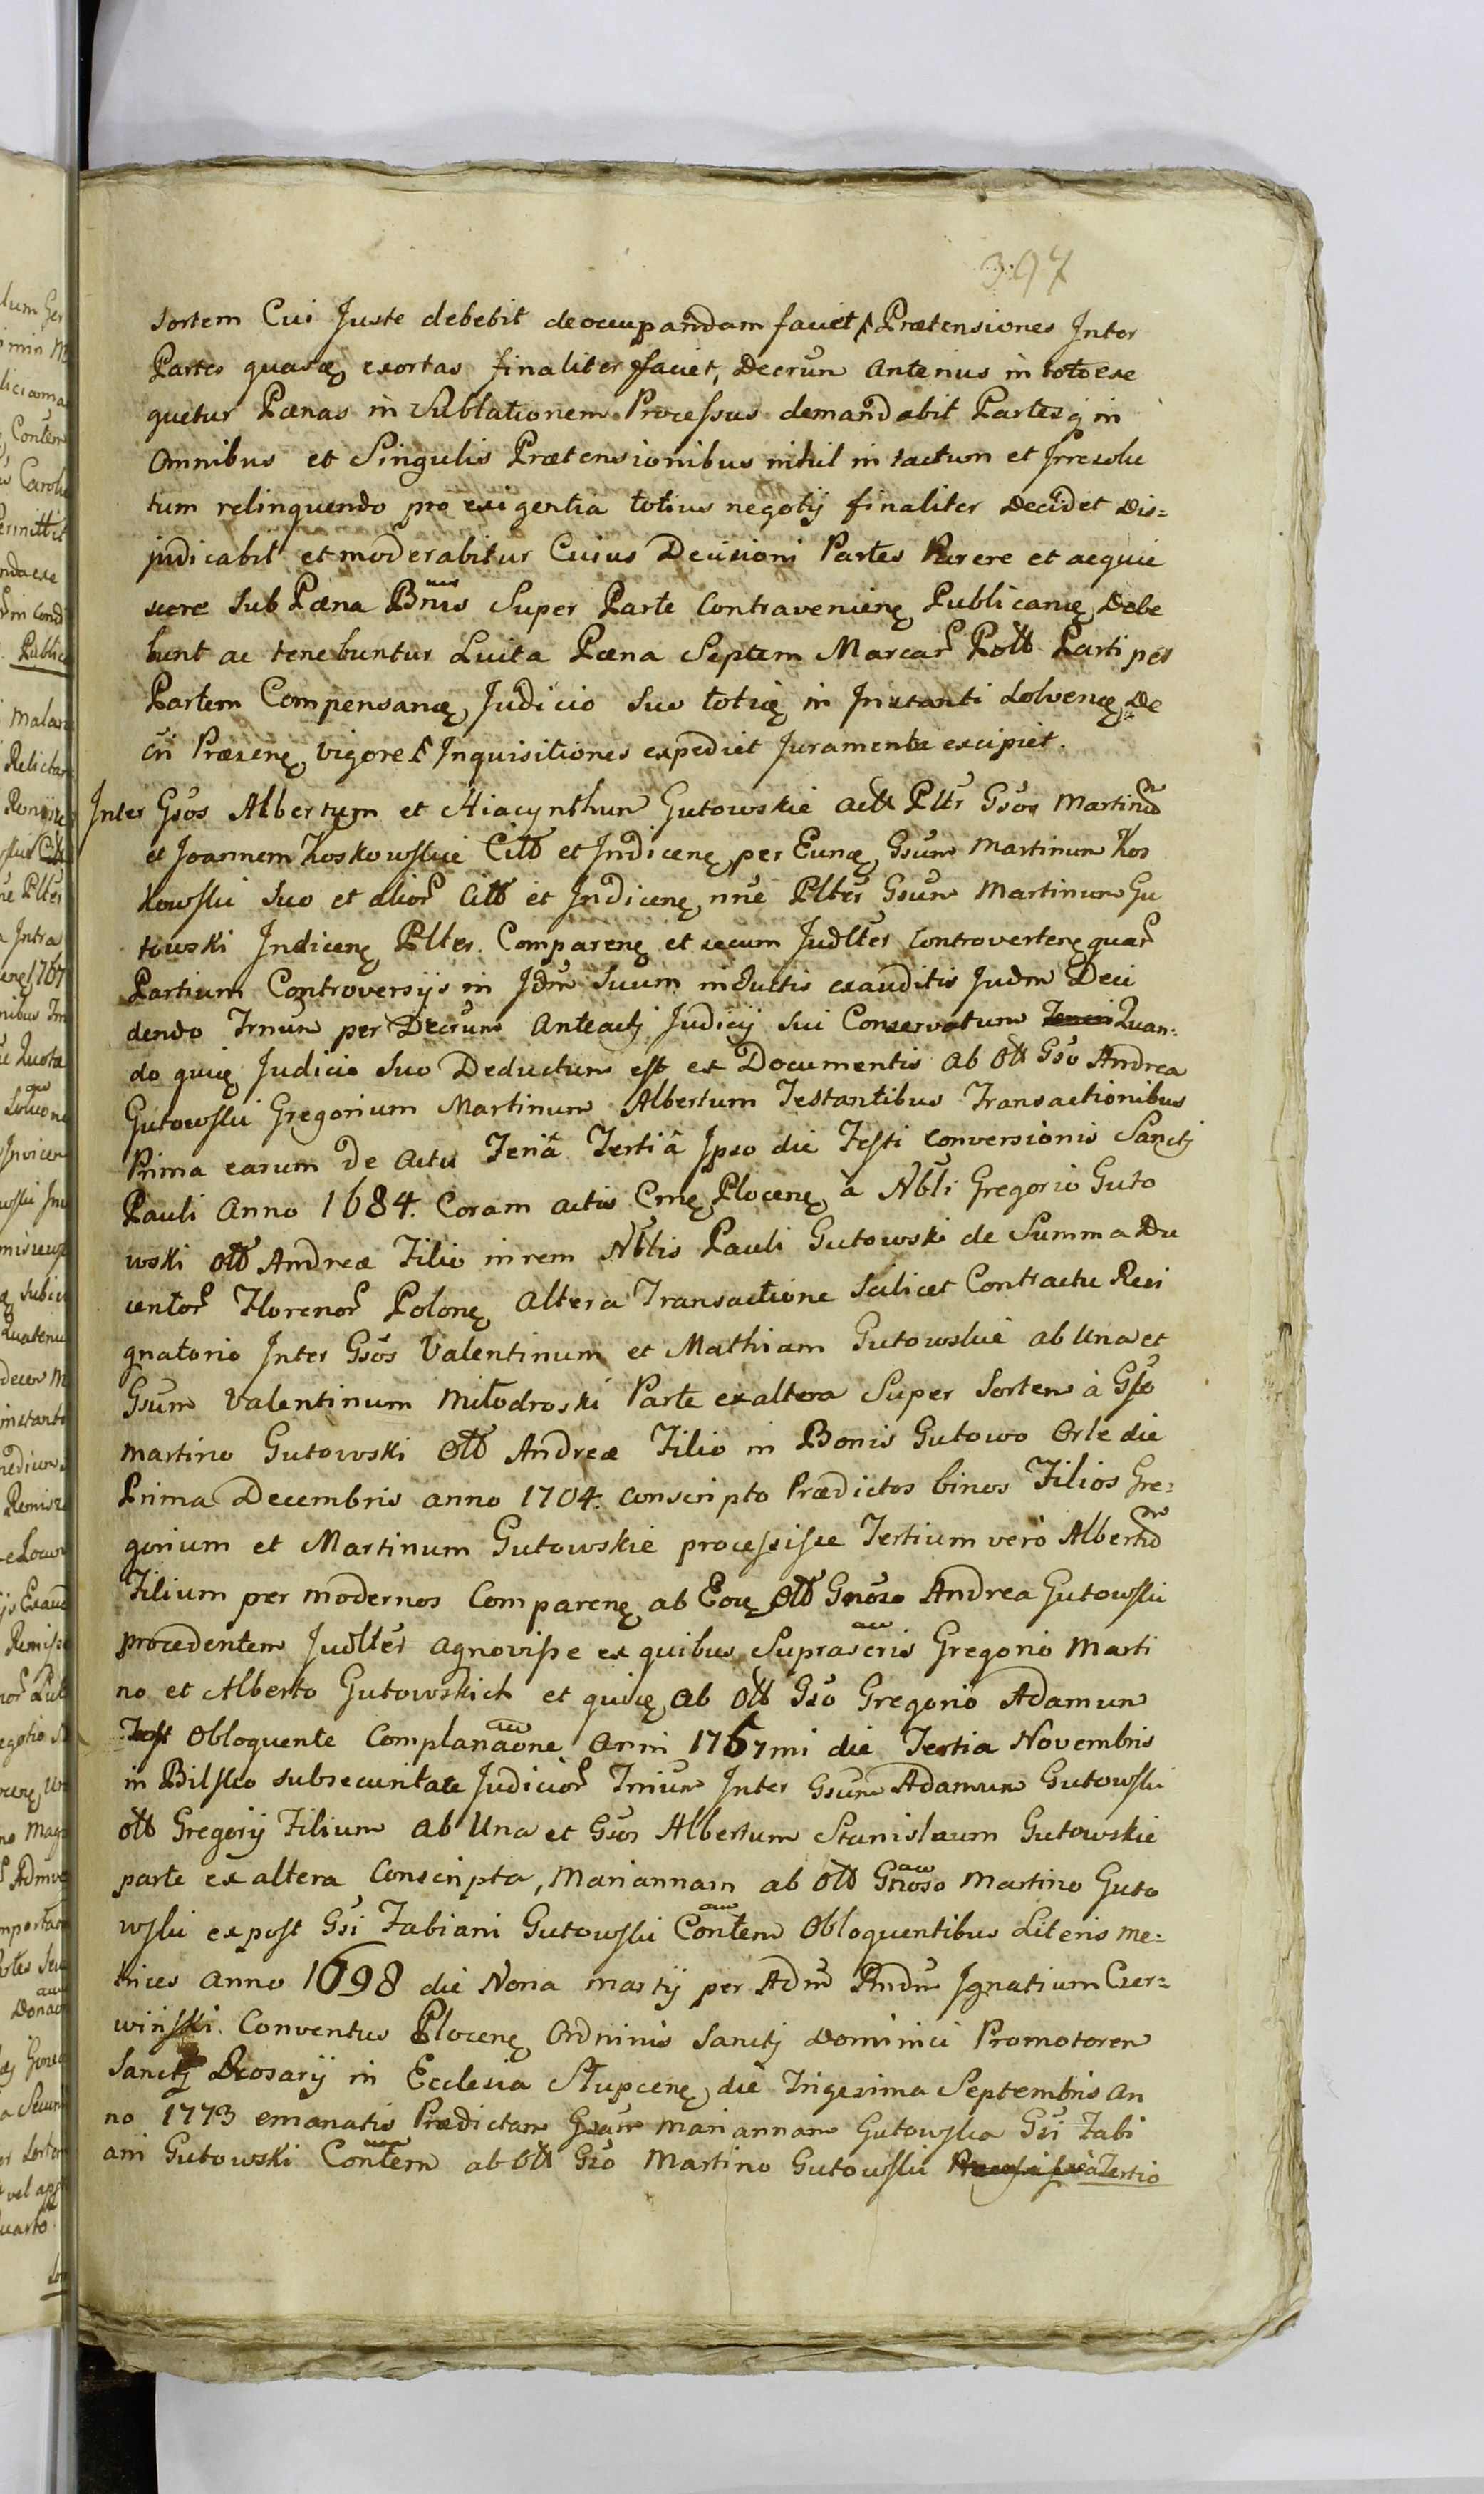 397
sortem Cui Juste debebit deoccupandam faciet, Prætensiones Inter
Partes quasę exortas finaliter faciet, Decrun Anterius in toto exe
quetur Pænas in Sublationem Processus demandabit Partesq in
Omnibus et Singulis Prætensionibus nihil intactum et Irresolu
tum relinquendo pro exigentia totius negotij finaliter Decidet Dis=
judicabit et moderabitur Cuius Decisioni Partes Parere et acquie
scere Sub Pæna Bnis Super Parte Contravenienę Publicanę Debe
bunt ac tenebuntur Luita Pæna Septem Marcar Poll Parti per
Partem Compensanę Judicio Suo totię in Instanti Solvenę De
cri Præsenę vigore Inquisitiones expediet Juramenta excipiet.
Inter Gsos Albertum et Hiacynthun Gutowskie Actt Pltr Gsos Martinu
et Joannem Koskowskie Citt et Indicenę per Eunę Gsum Martinum Kos
kowski Suo et alior Citt et Indicenę nne Plter Gsum Martinum Gu
towski Indicenę Plter. Comparenę et secum Judlter Controvertenę quar
Partium Controversijs in Jdm Suum inductis exauditis Judm Deci
dendo Irnum per Decrum Anteacti Judicij Sui Conservatum Quan=
do quię Judicio Suo Deductum est ex Documentis ab Ott Gso Andrea
Gutowski Gregorium Martinum Albertum Testantibus Transactionibus
Prima earum De Actu Feriâ Tertiâ Ipso die Festi Conversionis Sancti
Pauli Anno 1684. Coram actis Cmę Plocenę à Nbli Gregorio Guto
wski Ott Andreæ Filio in rem Nblis Pauli Gutowski de Summa Du
centor Florenor Polonę Altera Transactione Scilicet Contractu Resi
gnatorio Inter Gsos Valentinum et Mathiam Gutowskie ab Una et
Gsum Valentinum Miłodroski Parte ex altera Super Sortem à Gso
Martino Gutowski Ott Andreæ Filio in Bonis Gutowo Orle die
Prima Decembris Anno 1704. Conscripto Prædictos binos Filios Gre=
gorium et Martinum Gutowskie processisse Tertium vero Albertu
Filium per modernos Comparenę ab Eoę Ott Gnoso Andrea Gutowski
procedentem Judlter Agnovisse ex quibus Suprascris Gregorio Marti
no et Alberto Gutowskich et quidę ab Ott Gso Gregorio Adamum
Obloquente Complanaone Anni 1767mi die Tertia Novembris
in Bilsko subsecuritate Judicior Irnium Inter Gsum Adamum Gutowski
Ott Gregorij Filium ab Una et Gsos Albertum Stanislaum Gutowskie
parte ex altera Conscripta, Mariannam ab Ott Gnoso Martino Guto
wski expost Gsi Fabiani Gutowski Contem Obloquentibus Literis me=
trices Anno 1698 die Nona Martij per Adm Rndm Ignatium Czer=
wiński. Conventus Plocenę Ordninis Sancti Dominici Promotorem
Sancti Rosarij in Ecclesia Słupcenę die Trigesima Septembris An
no 1773 emanatis Prædictam Gsam Mariannam Gutowska Gsi Fabi
ani Gutowski Contem ab Ott Gso Martino Gutowski à Tertio